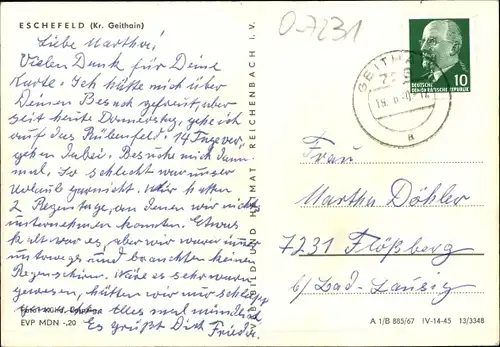 ESCHEFELD (Kr. Geithain)
O-7231
Liebe Martha!
Vielen Dank für Deine
Karte. Ich hätte mich über
Deinen Besuch gefreut, aber
seit heute Donnerstag, gehe ich
auf das Rübenfeld. 14 Tage ver-
gehen dabei. Besuche mich dann
mal. So schlecht war unser
Urlaub garnicht. Wir hatten
2 Regentage, an denen wir nichts
unternehmen konnten. Etwas
kalt war es, aber wir waren immer
unterwegs und brauchten keinen
Regenschirm. Wäre es sehr warm
gewesen, hätten wir nur schlapp
alles mal mündlich
Es grüßt Dich Frieda.
EVP MDN -,20
VEB BILD UND HEIMAT · REICHENBACH I. V.
GEITHAIN
a
10
DEUTSCHE
DEMOKRATISCHE REPUBLIK
Frau
Martha Döhler
7231 Flößberg
b/ Bad-Lausig
A 1/B 885/67 IV-14-45 13/3348